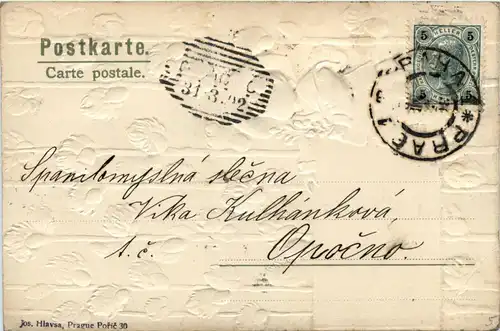 Postkarte.
Carte postale.
31.3.02
5 HELLER 5
5 5
PRAHA
PRAG 1
Spanilomyslná slečna
Vika Kulhánková,
t. č. Opočno.
Jos. Hlavsa, Prague Poříč 30